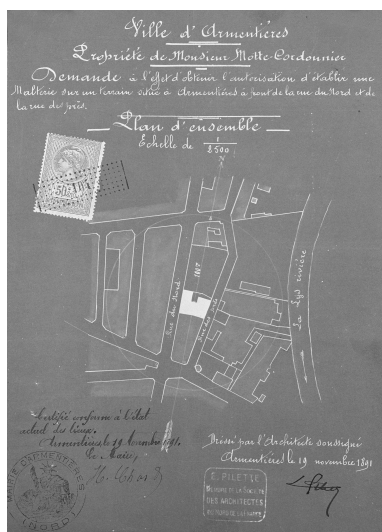 Ville d'Armentières
Propriété de Monsieur Motte-Cordonnier
Demande à l'effet d'obtenir l'autorisation d'établir une
Malterie sur un terrain situé à Armentières à front de la rue du Nord et de
la rue des près.
Plan d'ensemble
Echelle de 1/2500
Rue du Nord
Rue des Prés
La Lys rivière
Certifié conforme à l'état
actuel des lieux.
Armentières le 19 Novembre 1891.
Le Maire,
Dressé par l'Architecte soussigné
Armentières le 19 novembre 1891
MAIRIE D'ARMENTIÈRES
(NORD)
E. PILETTE
MEMBRE DE LA SOCIÉTÉ
DES ARCHITECTES
DU NORD DE LA FRANCE